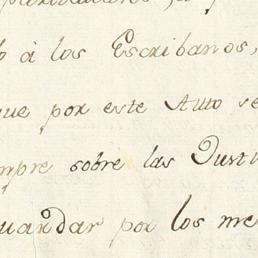 à los Escribanos,
que por este Auto se
mpre sobre las Justi
uardar por los me